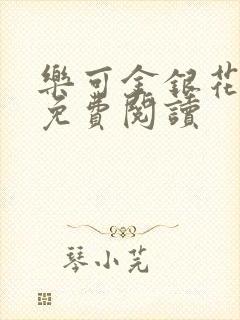 樂可金銀花
免費閱讀
琴小芫